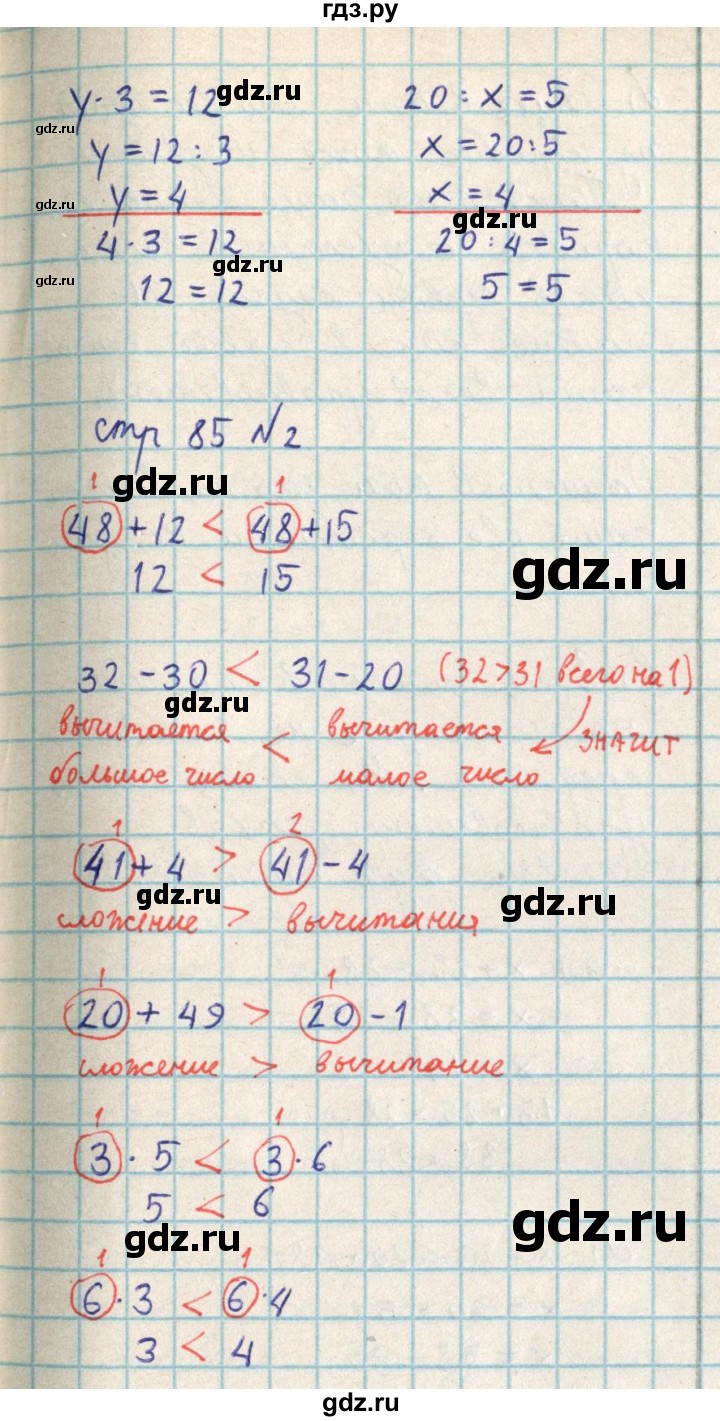 гдз.ру
y · 3 = 12 gdz.ru 20 : x = 5
gdz.ru
y = 12 : 3 x = 20 : 5
gdz.ru y = 4 x = 4
gdz.ru
4 · 3 = 12 20 : 4 = 5
gdz.ru
gdz.ru 12 = 12 5 = 5
стр 85 №2
1 1
gdz.ru
48 + 12 < 48 + 15
12 < 15
gdz.ru
32 - 30 < 31 - 20 (32 > 31 всего на 1)
gdz.ru
вычитается < вычитается ЗНАЧИТ
большое число малое число
1 2
41 + 4 > 41 - 4
gdz.ru gdz.ru
сложение > вычитания
1 1
20 + 49 > 20 - 1
сложение > вычитание
1 1
3 · 5 < 3 · 6
5 < 6
gdz.ru gdz.ru
1 1
6 · 3 < 6 · 4
3 < 4
gdz.ru